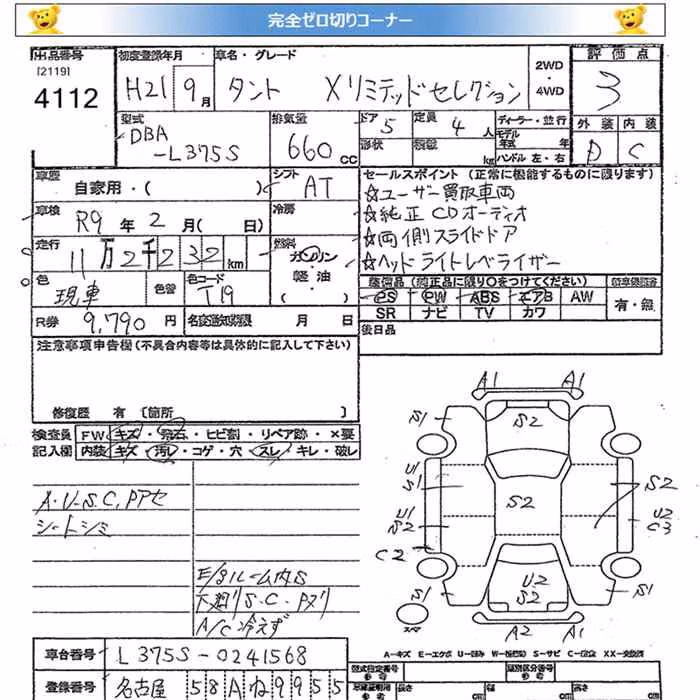 完全ゼロ切りコーナー
出品番号
[2119]
4112
初度登録年月
H21 9月
車名・グレード
タント Xリミテッドセレクション
2WD
・
4WD
評価点
3
型式
DBA
-L375S
排気量
660 cc
ドア 5
定員 4 人
形状
積載 kg
ディーラー・並行
モデル
年式 年
ハンドル 左・右
外装 内装
D C
車歴
自家用・( )
シフト
AT
車検
R9 年 2 月( 日)
冷房
走行
11万2千232 km
燃料
ガソリン
・
軽油
( )
色
現車
色替
色コード
T19
R券
9,790 円
名変期限 月 日
セールスポイント(正常に機能するものに限ります)
☆ユーザー買取車両
☆純正CDオーディオ
☆両側スライドドア
☆ヘッドライトレベライザー
装備品(純正品に限り○をつけてください)
PS PW ABS エアB AW
SR ナビ TV カワ
有・無
後日品
注意事項申告欄(不具合内容等は具体的に記入して下さい)
修復歴 有 [箇所 ]
検査員 FW キズ・飛石・ヒビ割・リペア跡・×要
記入欄 内装 キズ・汚レ・コゲ・穴・スレ・キレ・破レ
A・U・S.C.Pアセ
シートシミ
E/gルーム内S
下廻りS.C.Pヌリ
A/C冷えず
A1 A1
S1 S2 S1
U1
S1
S2
S2
U1
S2
U2
C3
C2
U2
S2
S1 S1
スペア
A2 A1
A-キズ E-エクボ U-凹み W-補修跡 S-サビ C-腐食 XX-交換済
車台番号 L375S-0241568
登録番号 名古屋 58Aね9955
型式指定番号
参考
類別区分番号
参考
長さ cm
幅 cm
高さ cm